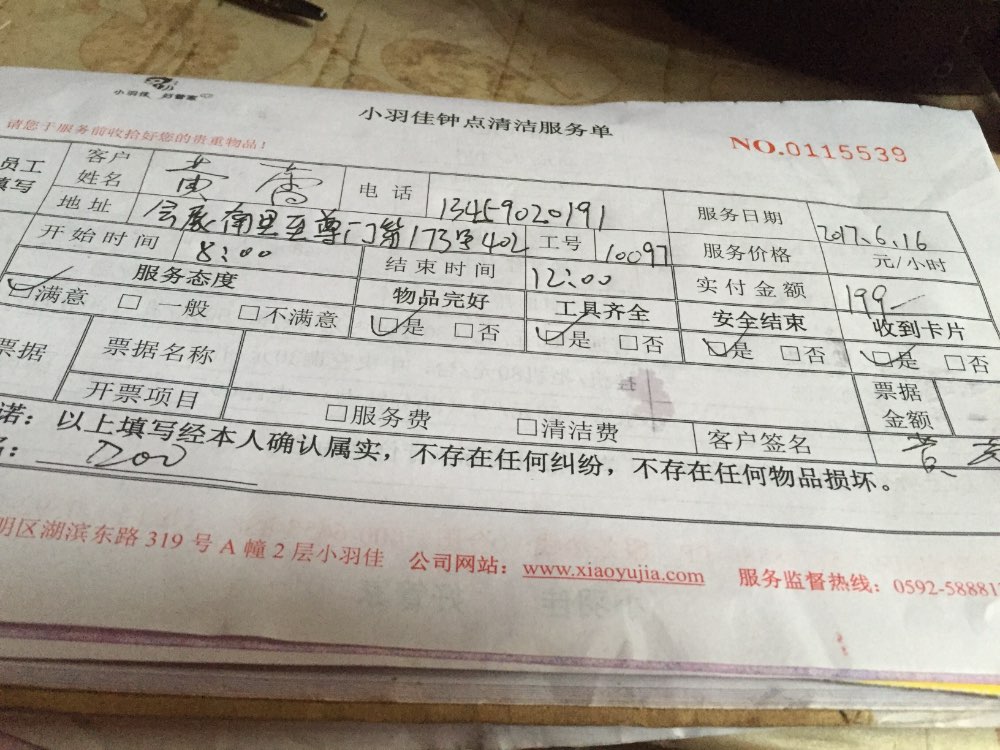 小羽佳 好管家
小羽佳钟点清洁服务单
请您于服务前收拾好您的贵重物品！
NO.0115539
员工填写 客户姓名 黄 电话 13459020191 服务日期 2017.6.16
地址 会展南里至尊门第173号402 工号 10097 服务价格 元/小时
开始时间 8:00 结束时间 12:00 实付金额 199
服务态度 物品完好 工具齐全 安全结束 收到卡片
☑满意 □一般 □不满意 ☑是 □否 ☑是 □否 ☑是 □否 ☑是 □否
票据 票据名称 票据金额
开票项目 □服务费 □清洁费 客户签名
诺：以上填写经本人确认属实，不存在任何纠纷，不存在任何物品损坏。
明区湖滨东路 319 号 A 幢 2 层小羽佳 公司网站：www.xiaoyujia.com 服务监督热线：0592-58881